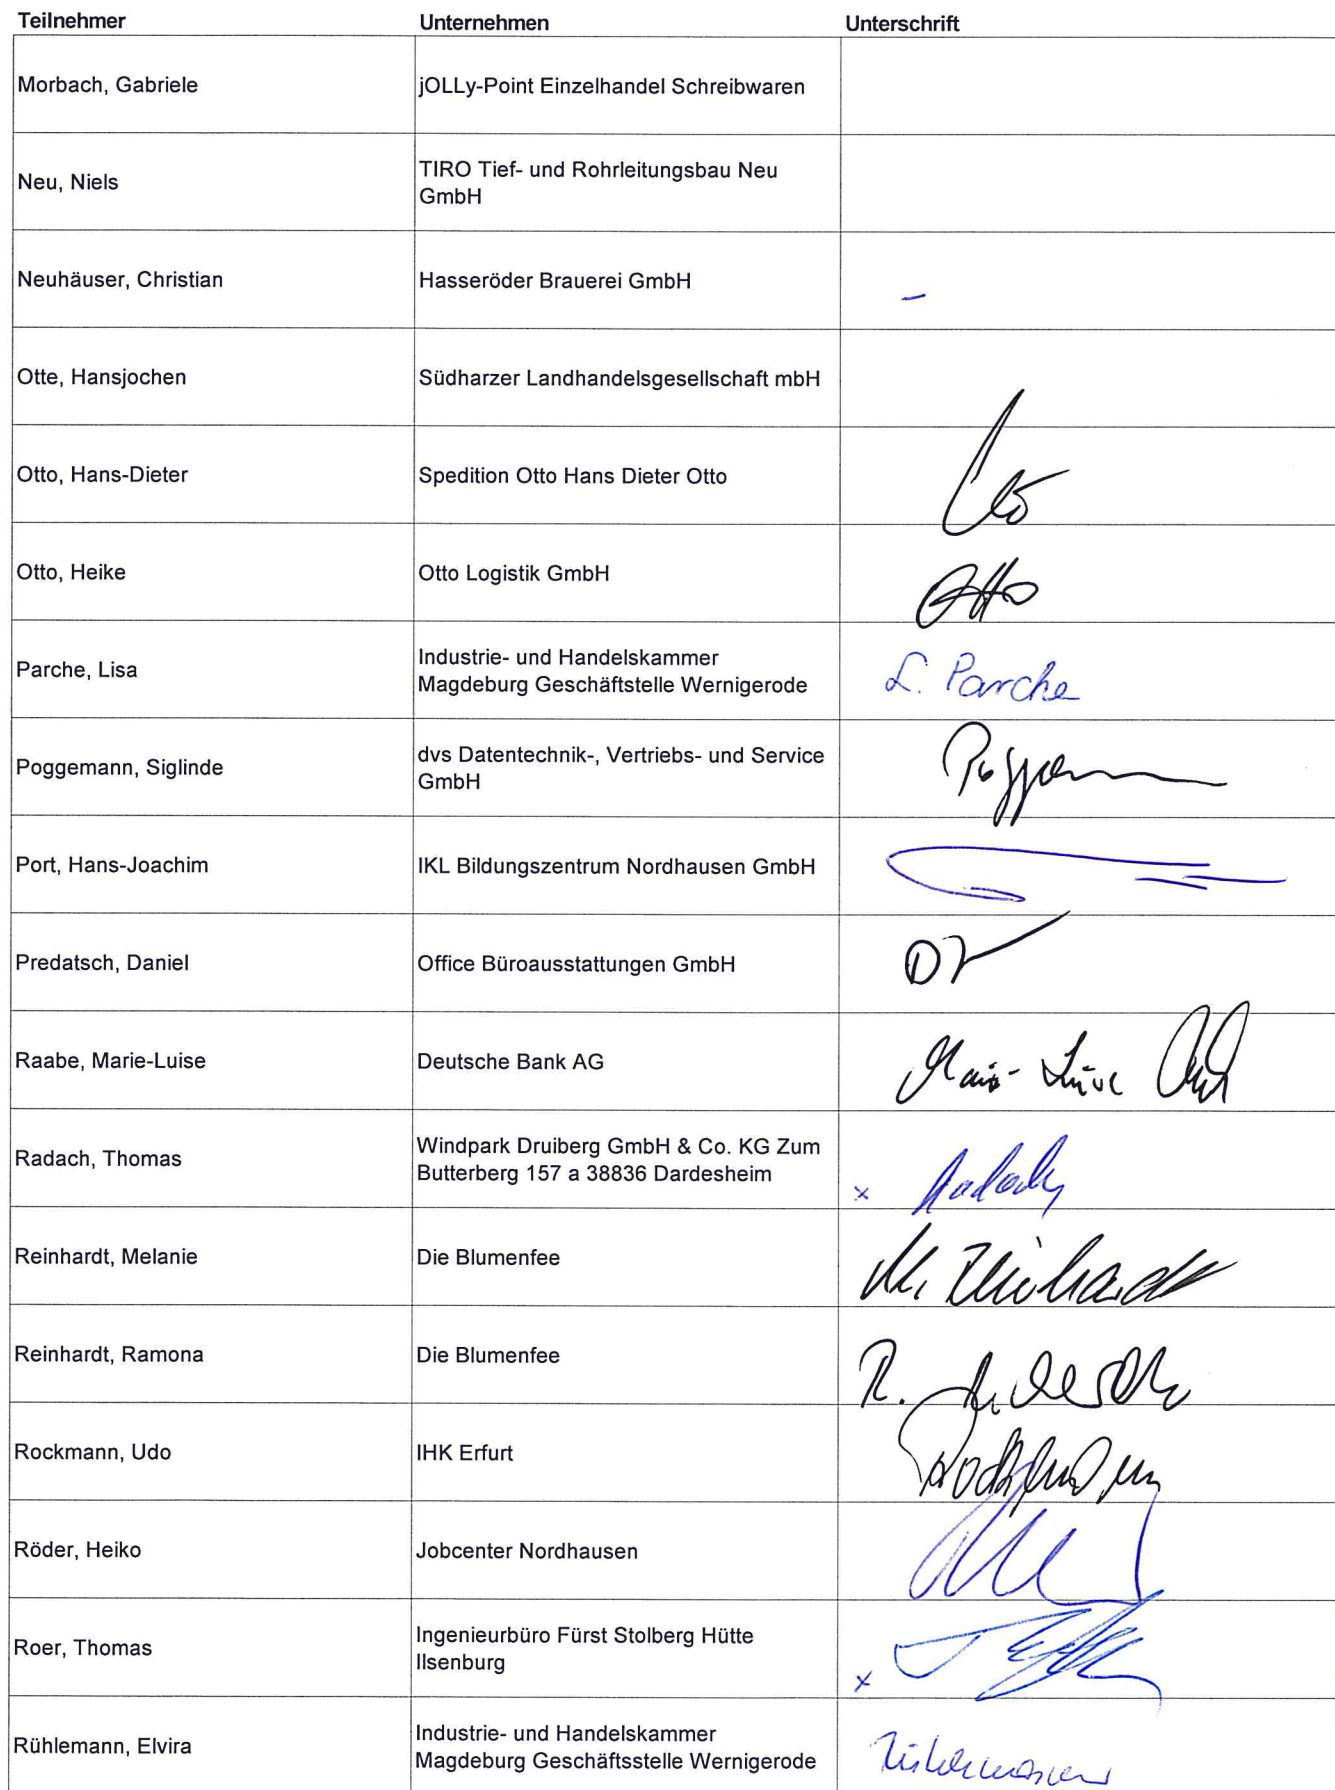 Teilnehmer Unternehmen Unterschrift
Morbach, Gabriele jOLLy-Point Einzelhandel Schreibwaren
Neu, Niels TIRO Tief- und Rohrleitungsbau Neu
GmbH
Neuhäuser, Christian Hasseröder Brauerei GmbH –
Otte, Hansjochen Südharzer Landhandelsgesellschaft mbH
Otto, Hans-Dieter Spedition Otto Hans Dieter Otto
Otto, Heike Otto Logistik GmbH Otto
Parche, Lisa Industrie- und Handelskammer
Magdeburg Geschäftstelle Wernigerode L. Parche
Poggemann, Siglinde dvs Datentechnik-, Vertriebs- und Service
GmbH
Port, Hans-Joachim IKL Bildungszentrum Nordhausen GmbH
Predatsch, Daniel Office Büroausstattungen GmbH
Raabe, Marie-Luise Deutsche Bank AG
Radach, Thomas Windpark Druiberg GmbH & Co. KG Zum
Butterberg 157 a 38836 Dardesheim x Radach
Reinhardt, Melanie Die Blumenfee M. Reinhardt
Reinhardt, Ramona Die Blumenfee R.
Rockmann, Udo IHK Erfurt
Röder, Heiko Jobcenter Nordhausen
Roer, Thomas Ingenieurbüro Fürst Stolberg Hütte
Ilsenburg x
Rühlemann, Elvira Industrie- und Handelskammer
Magdeburg Geschäftsstelle Wernigerode Rühlemann